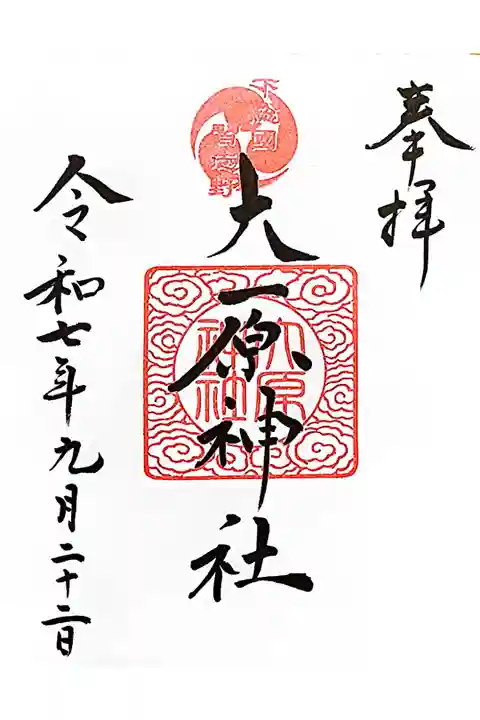 奉拝
下總國
習志野
大原神社
大原
神社
令和七年九月二十二日